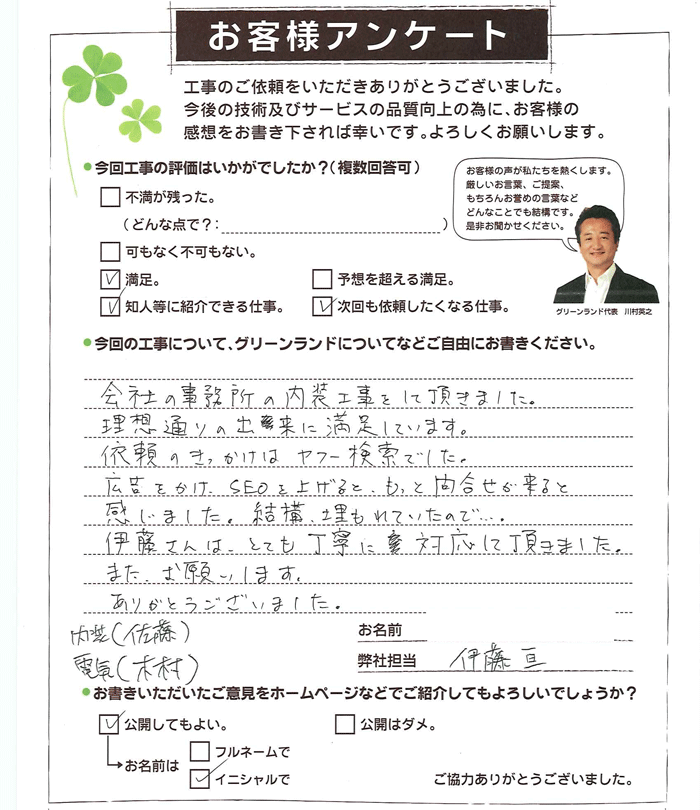 お客様アンケート
工事のご依頼をいただきありがとうございました。
今後の技術及びサービスの品質向上の為に、お客様の
感想をお書き下されば幸いです。よろしくお願いします。
●今回工事の評価はいかがでしたか?(複数回答可)
お客様の声が私たちを熱くします。
厳しいお言葉、ご提案、
もちろんお誉めの言葉など
どんなことでも結構です。
是非お聞かせください。
グリーンランド代表 川村英之
不満が残った。
(どんな点で?: )
可もなく不可もない。
満足。 予想を超える満足。
知人等に紹介できる仕事。 次回も依頼したくなる仕事。
●今回の工事について、グリーンランドについてなどご自由にお書きください。
会社の事務所の内装工事をして頂きました。
理想通りの出来に満足しています。
依頼のきっかけはヤフー検索でした。
広告をかけ、SEOを上げると、もっと問合せが来ると
感じました。結構、埋もれていたので…。
伊藤さんは、とても丁寧に対応して頂きました。
また、お願いします。
ありがとうございました。
内装(佐藤)
電気(木村)
お名前
弊社担当 伊藤 亘
●お書きいただいたご意見をホームページなどでご紹介してもよろしいでしょうか?
公開してもよい。 公開はダメ。
お名前は
フルネームで
イニシャルで
ご協力ありがとうございました。